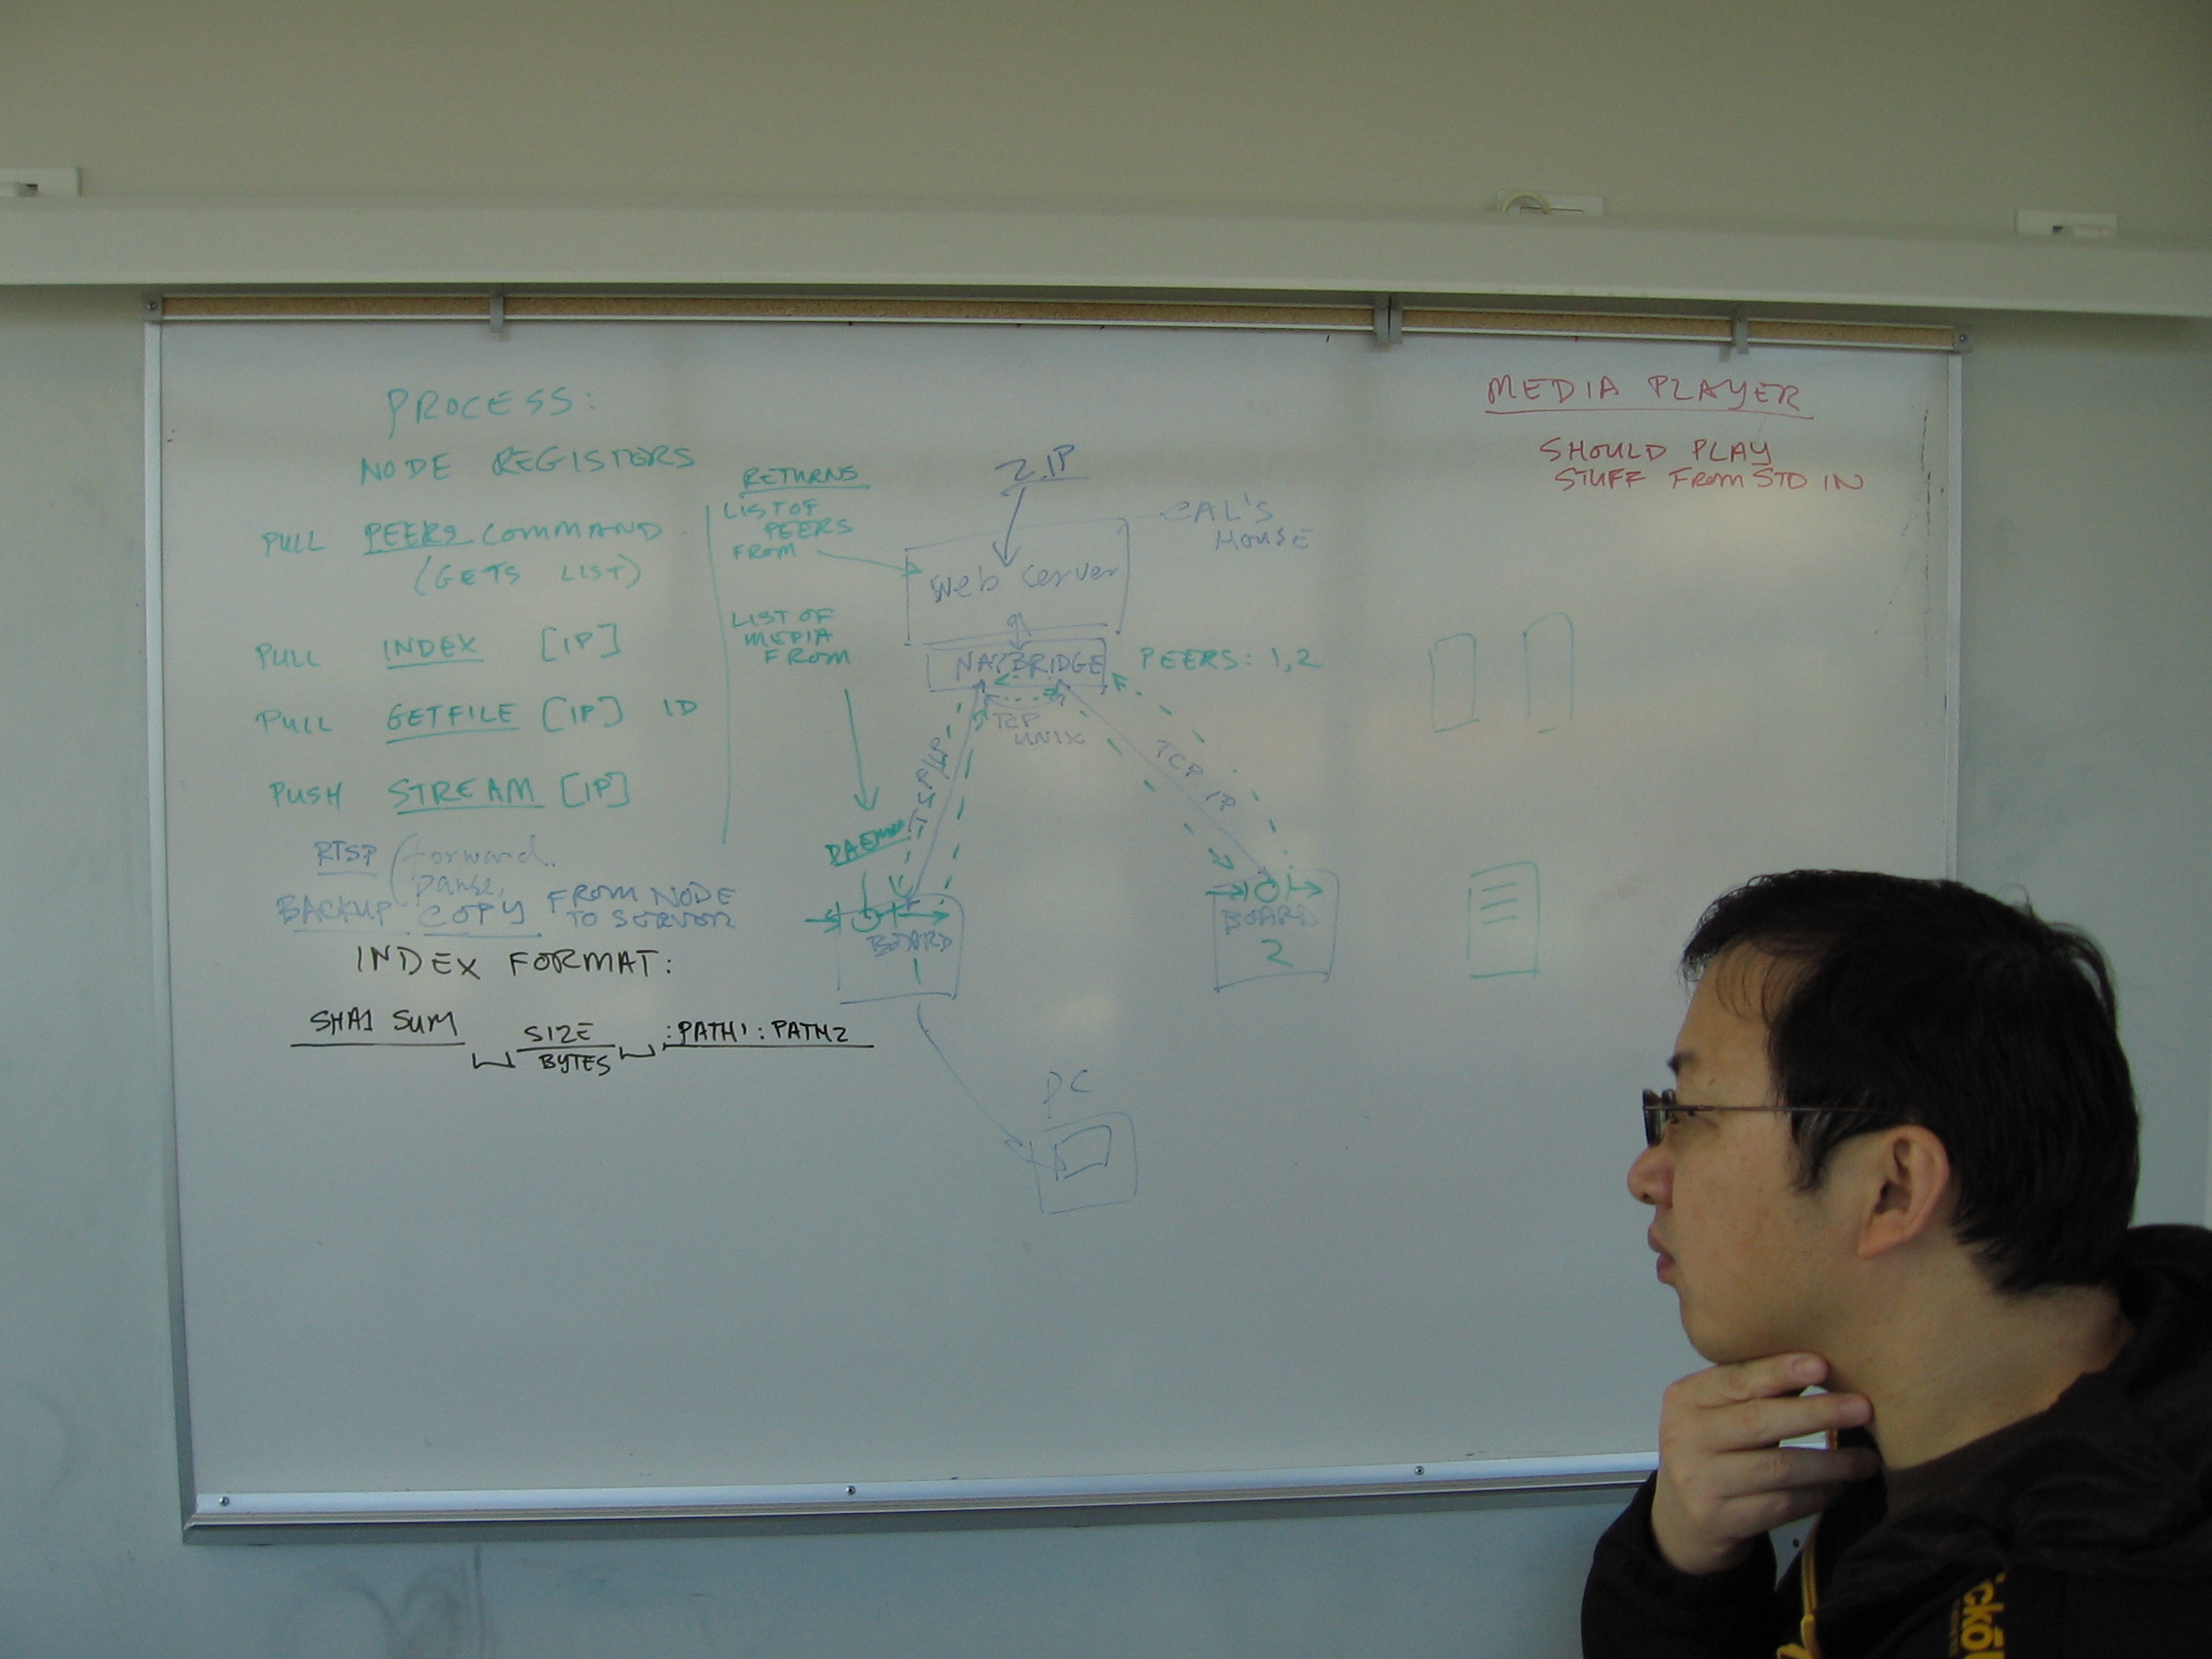 PROCESS:
NODE REGISTERS
PULL PEERS COMMAND
(GETS LIST)
PULL INDEX [IP]
PULL GETFILE [IP] ID
PUSH STREAM [IP]
RTSP (forward..
pause,
BACKUP COPY FROM NODE
TO SERVER
INDEX FORMAT:
SHA1 SUM SIZE :PATH1:PATH2
BYTES
RETURNS
LIST OF
PEERS
FROM
LIST OF
MEDIA
FROM
DAEMON
2 IP
CAL'S
HOUSE
Web Server
NAPBRIDGE
PEERS: 1,2
TCP
UNIX
TCP/IP
TCP/IP
BOARD
1
BOARD
2
PC
MEDIA PLAYER
SHOULD PLAY
STUFF FROM STD IN